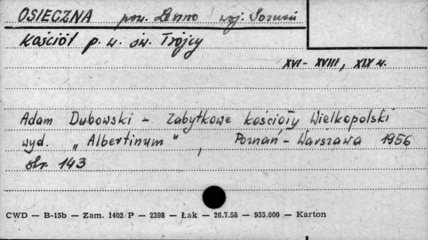 OSIECZNA pow. Leszno woj. Poznań
Kościół p. w. św. Trójcy
XVI - XVIII, XIX w.
Adam Dubowski - Zabytkowe kościoły Wielkopolski
wyd. „Albertinum", Poznań - Warszawa 1956
str. 143
CWD — B-15b — Zam. 1402/P — 2398 — Łak — 26.7.58 — 935.000 — Karton